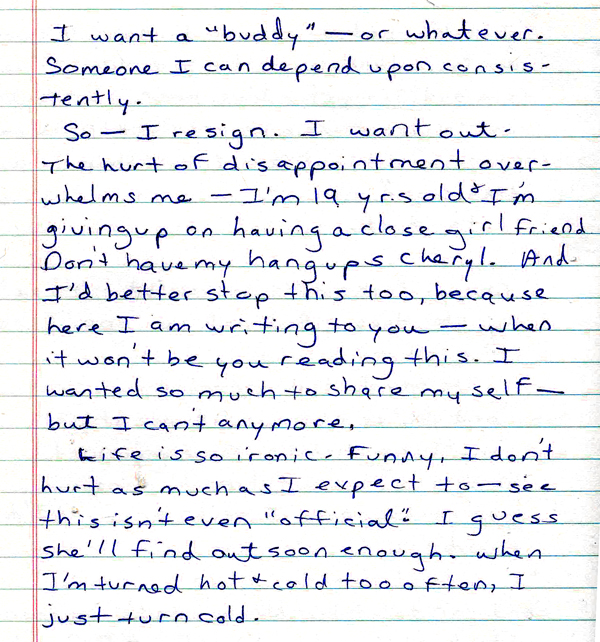 I want a "buddy" — or whatever.
Someone I can depend upon consis-
tently.
So — I resign. I want out.
The hurt of disappointment over-
whelms me — I'm 19 yrs old & I'm
giving up on having a close girl friend
Don't have my hangups Cheryl. And
I'd better stop this too, because
here I am writing to you — when
it won't be you reading this. I
wanted so much to share my self —
but I can't anymore.
Life is so ironic. Funny, I don't
hurt as much as I expect to — see
this isn't even "official". I guess
she'll find out soon enough. When
I'm turned hot & cold too often, I
just turn cold.